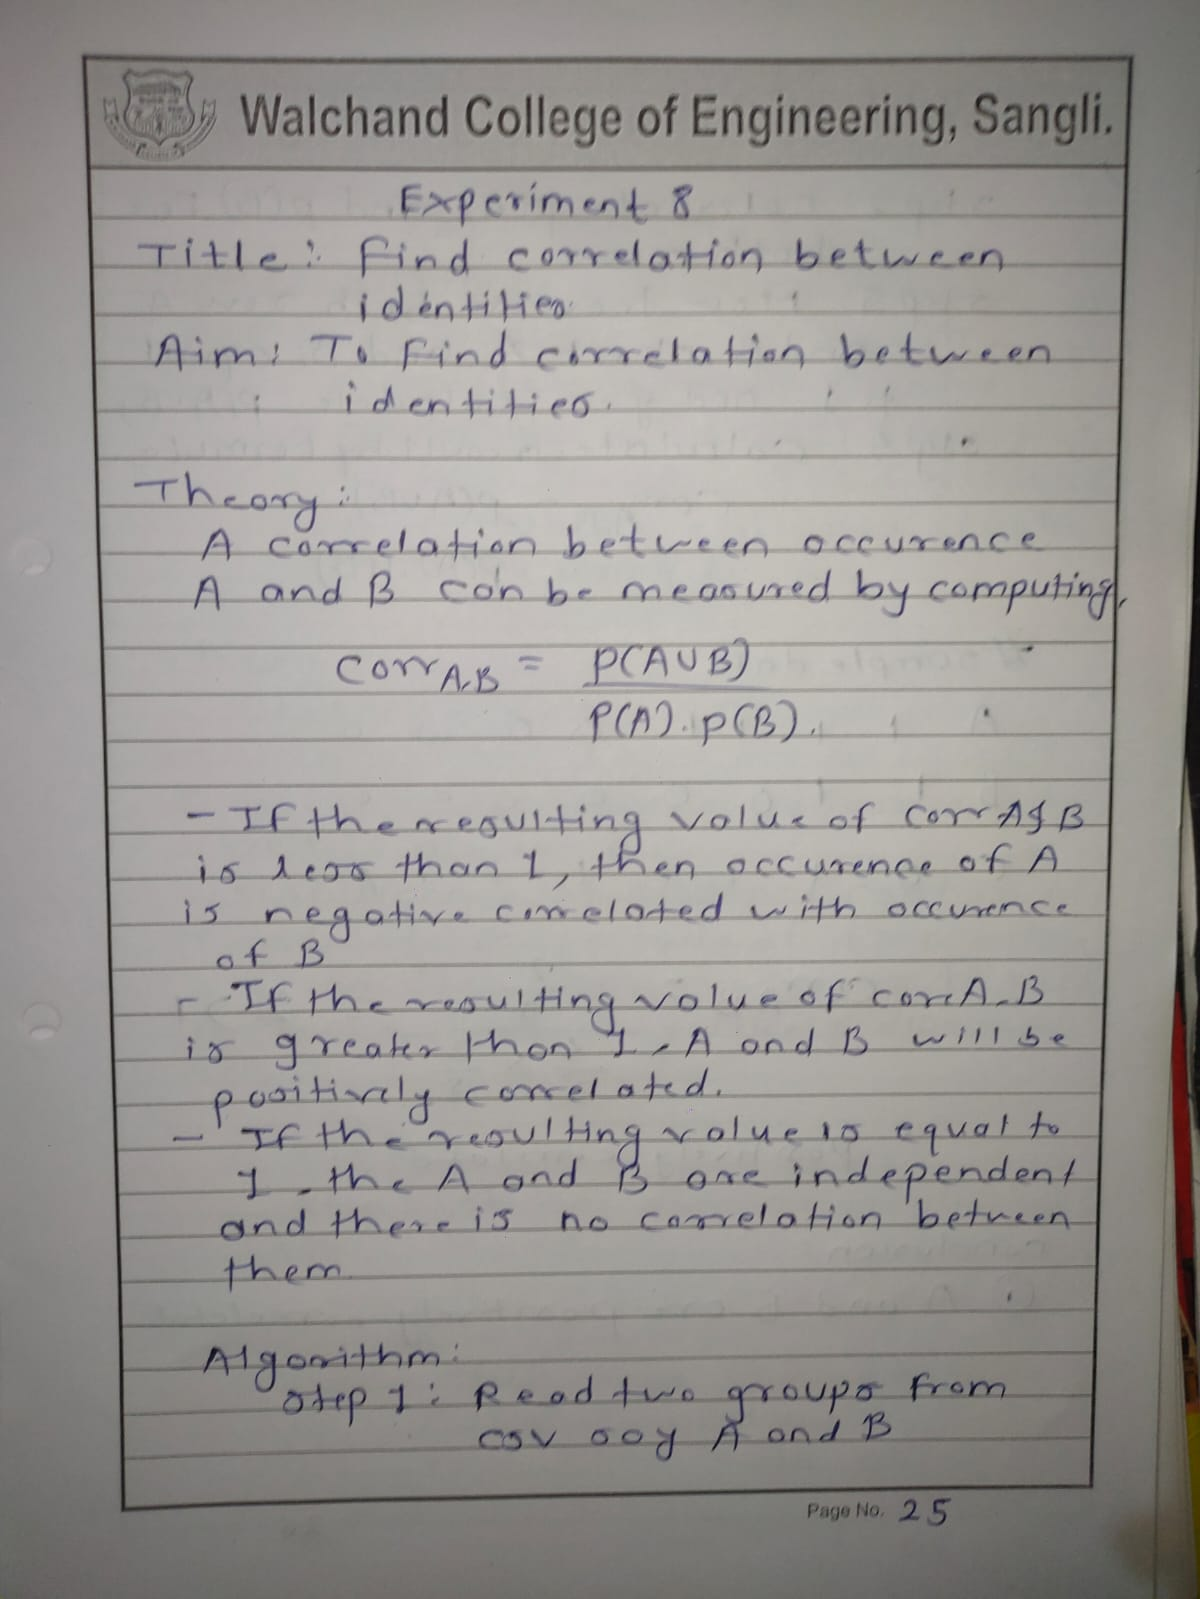 Walchand College of Engineering, Sangli.
Experiment 8
Title: Find correlation between
identities.
Aim: To Find correlation between
identities.
Theory:
A correlation between occurence
A and B can be measured by computing,
CorrA,B = P(A∪B)
P(A).p(B).
- If the resulting value of Corr A,B
is less than 1, then occurence of A
is negative correlated with occurence
of B
- If the resulting value of corrA,B
is greater than 1, A and B will be
positively correlated.
- If the resulting value is equal to
1, the A and B are independent
and there is no correlation between
them.
Algorithm:
Step 1: Read two groups from
csv say A and B
Page No. 25